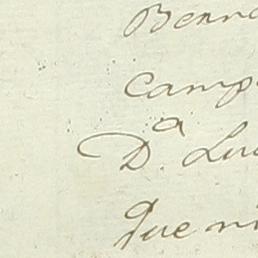 Berna
camp
Dª Lu
que ni